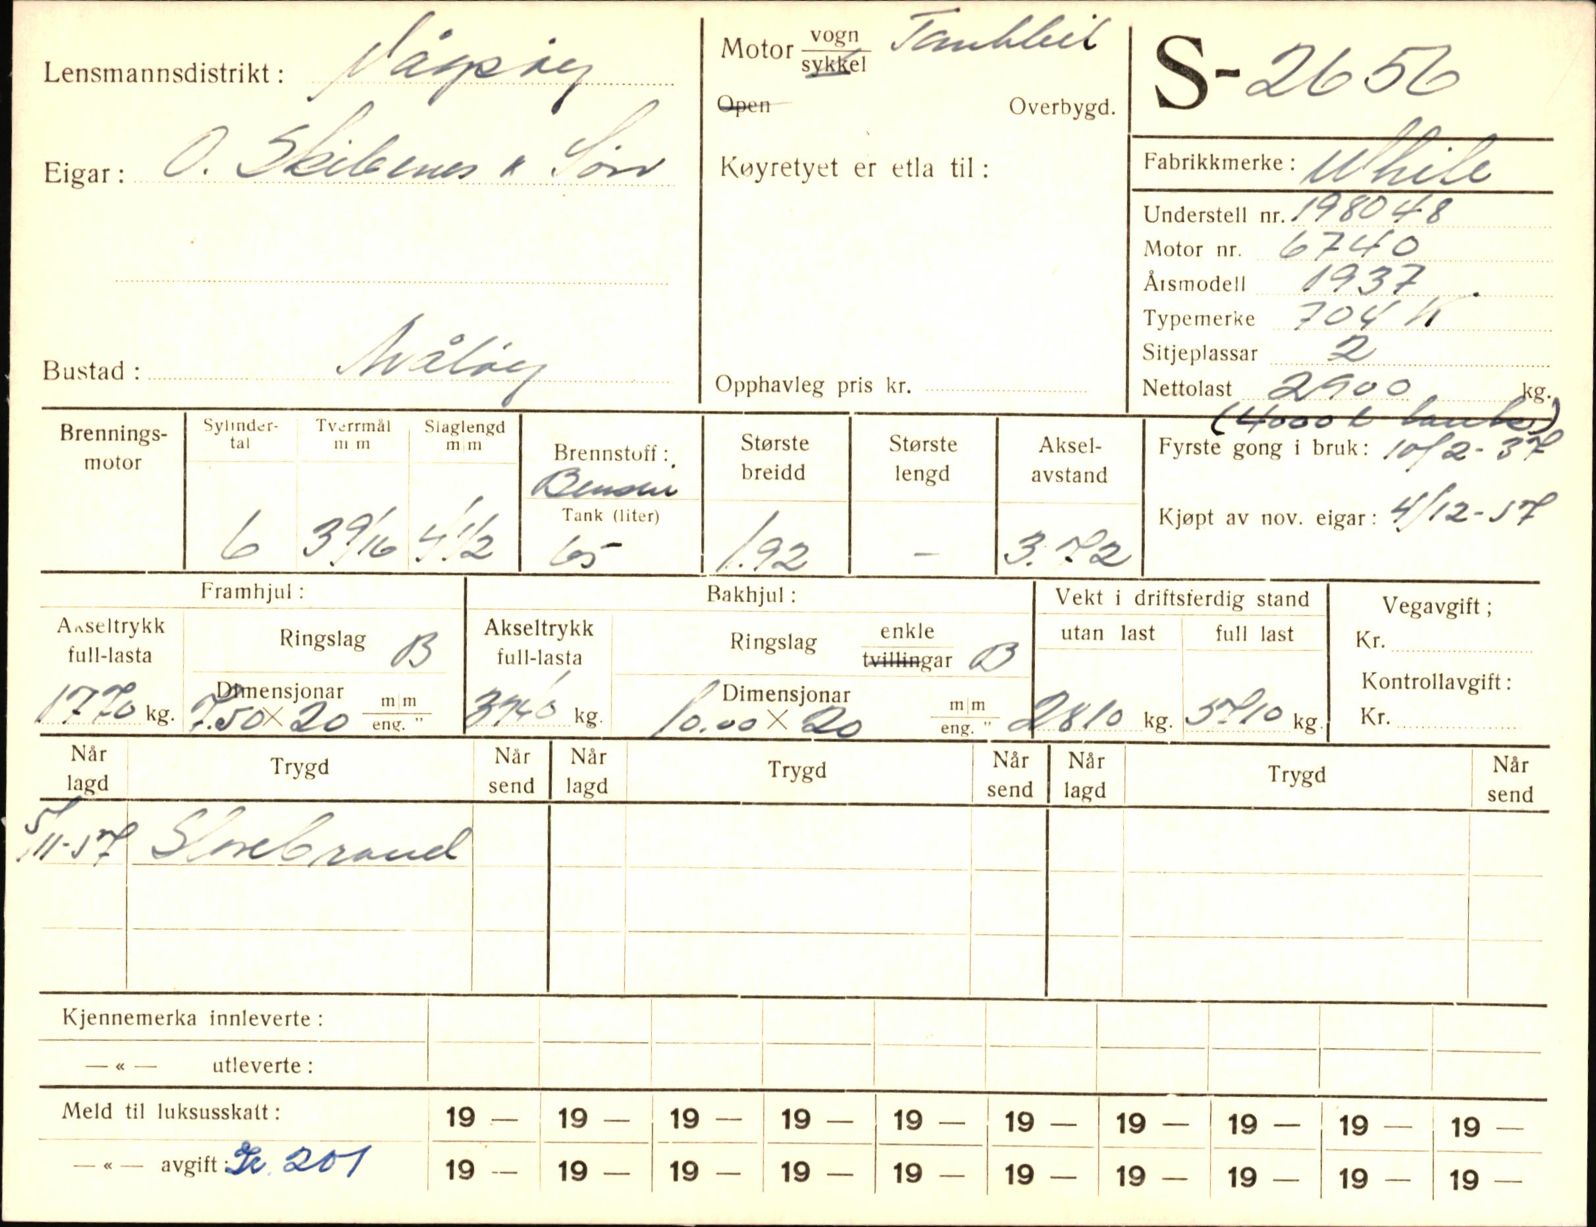 Lensmannsdistrikt: Vågsøy
Eigar: O. Skibenes & Søn
Bustad: Måløy
Motor vogn Tankbil
sykkel
Open Overbygd.
Køyretyet er etla til:
Opphavleg pris kr.
S-2656
Fabrikkmerke: White
Understell nr. 198048
Motor nr. 6740
Årsmodell 1937
Typemerke 704
Sitjeplassar 2
Nettolast 2900 kg.
(4000 l tank)
Fyrste gong i bruk: 10/2-37
Kjøpt av nov. eigar: 4/12-57
Brennings-
motor
Sylinder-
tal
6
Tverrmål
m m
3 9/16
Slaglengd
m/m
4 1/2
Brennstoff:
Bensin
Tank (liter)
65
Største
breidd
1.92
Største
lengd
-
Aksel-
avstand
3.72
Framhjul:
Akseltrykk
full-lasta
1770 kg.
Ringslag B
Dimensjonar m/m
7.50 × 20 eng. "
Bakhjul:
Akseltrykk
full-lasta
3940 kg.
Ringslag enkle
tvillingar B
Dimensjonar m/m
10.00 × 20 eng. "
Vekt i driftsferdig stand
utan last full last
2810 kg. 5710 kg.
Vegavgift;
Kr.
Kontrollavgift:
Kr.
Når lagd Trygd Når send Når lagd Trygd Når send Når lagd Trygd Når send
5/11-57 Storebrand
Kjennemerka innleverte:
— « — utleverte:
Meld til luksusskatt: 19 — 19 — 19 — 19 — 19 — 19 — 19 — 19 — 19 — 19 —
— « — avgift: 201 19 — 19 — 19 — 19 — 19 — 19 — 19 — 19 — 19 — 19 —